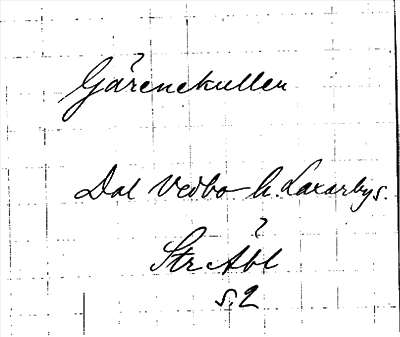 Gårenekullen
Dal Vedbo h. Laxarbys.
Str Åbl
s. 2